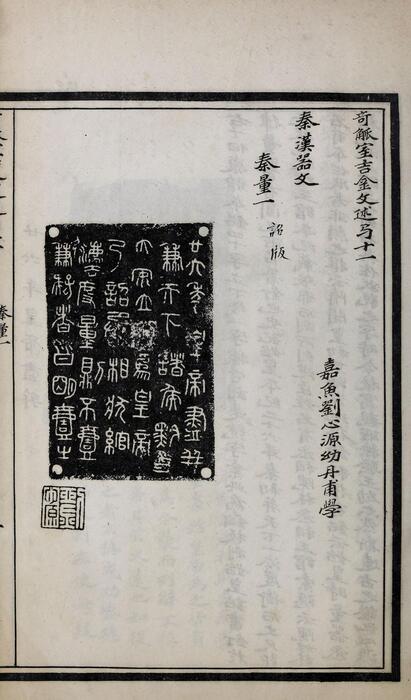 奇觚室吉金文述弓十一
嘉魚劉心源幼丹甫學
秦漢器文
秦量一 詔版
廿六年皇帝盡并
兼天下諸侯黔首
大安立號爲皇帝
乃詔丞相狀綰
灋度量則不壹
歉疑者皆明壹之
劉心源
秦量一